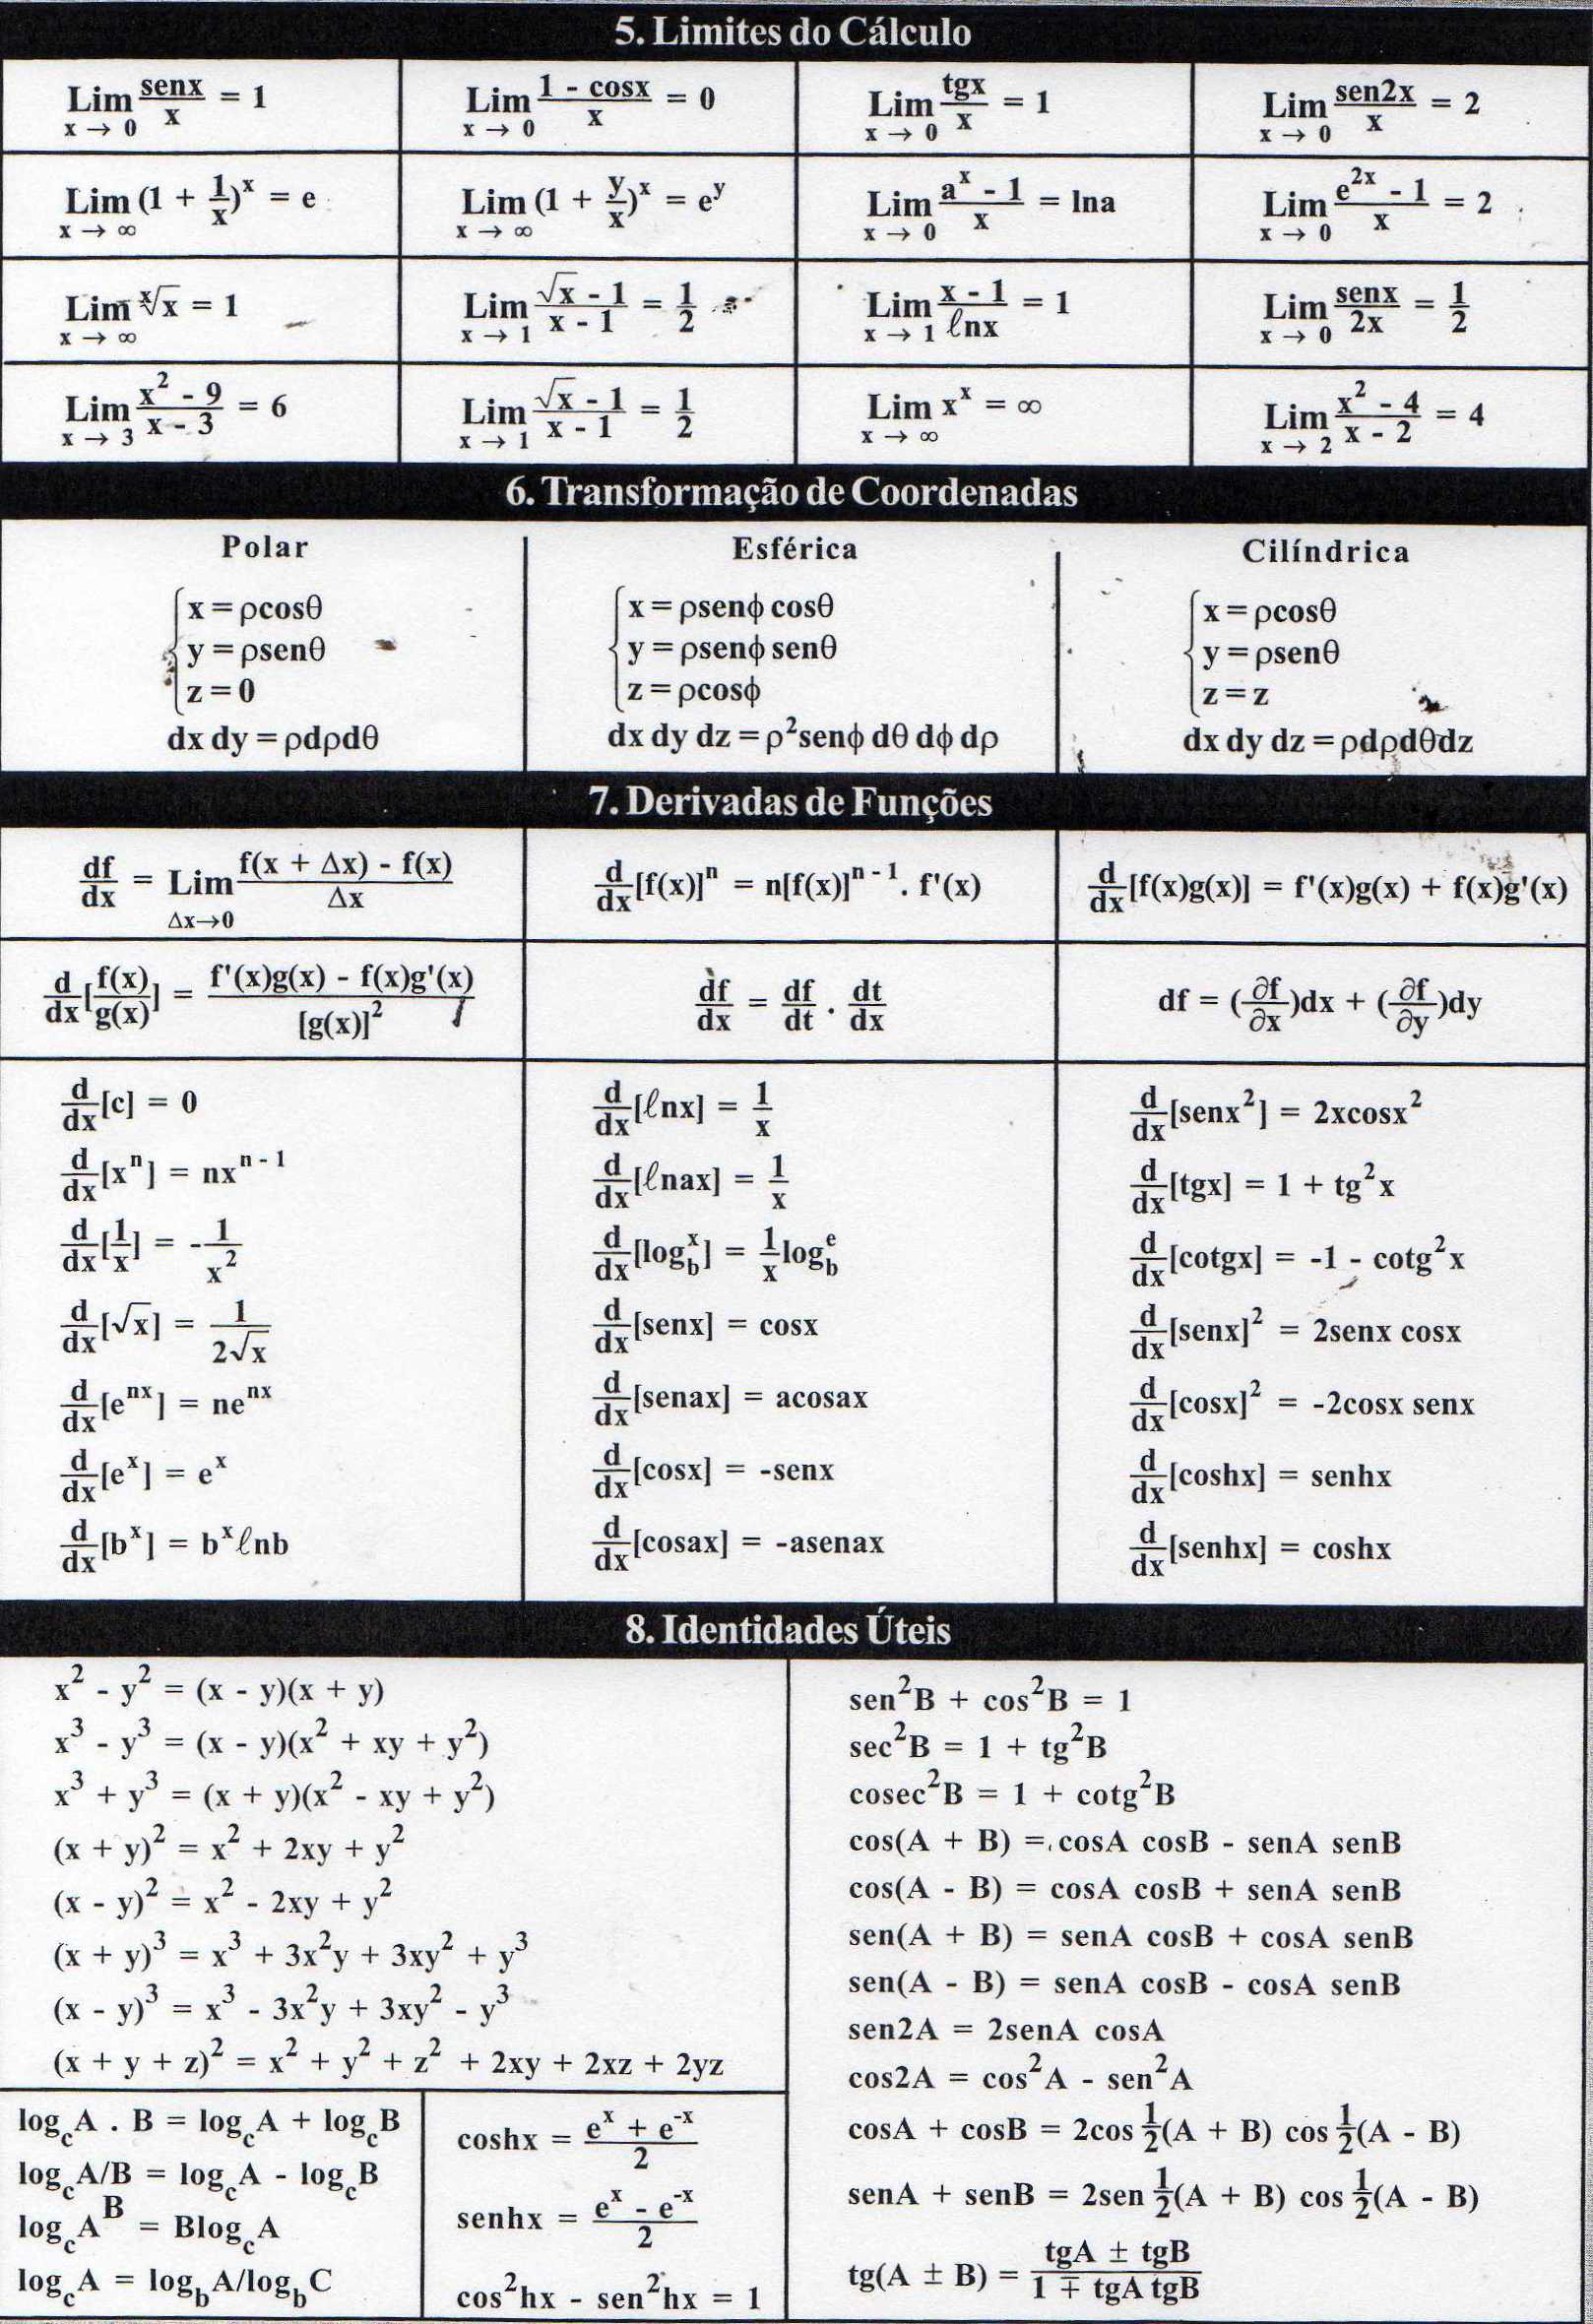 5. Limites do Cálculo
Lim x → 0 senx/x = 1
Lim x → 0 (1 - cosx)/x = 0
Lim x → 0 tgx/x = 1
Lim x → 0 sen2x/x = 2
Lim x → ∞ (1 + 1/x)^x = e
Lim x → ∞ (1 + y/x)^x = e^y
Lim x → 0 (a^x - 1)/x = lna
Lim x → 0 (e^2x - 1)/x = 2
Lim x → ∞ ˣ√x = 1
Lim x → 1 (√x - 1)/(x - 1) = 1/2
Lim x → 1 (x - 1)/ℓnx = 1
Lim x → 0 senx/2x = 1/2
Lim x → 3 (x² - 9)/(x - 3) = 6
Lim x → 1 (√x - 1)/(x - 1) = 1/2
Lim x → ∞ x^x = ∞
Lim x → 2 (x² - 4)/(x - 2) = 4
6. Transformação de Coordenadas
Polar
x = ρcosθ
y = ρsenθ
z = 0
dx dy = ρdρdθ
Esférica
x = ρsenϕ cosθ
y = ρsenϕ senθ
z = ρcosϕ
dx dy dz = ρ²senϕ dθ dϕ dρ
Cilíndrica
x = ρcosθ
y = ρsenθ
z = z
dx dy dz = ρdρdθdz
7. Derivadas de Funções
df/dx = Lim Δx→0 (f(x + Δx) - f(x))/Δx
d/dx[f(x)]^n = n[f(x)]^(n - 1) . f'(x)
d/dx[f(x)g(x)] = f'(x)g(x) + f(x)g'(x)
d/dx[f(x)/g(x)] = (f'(x)g(x) - f(x)g'(x))/[g(x)]²
df/dx = df/dt . dt/dx
df = (∂f/∂x)dx + (∂f/∂y)dy
d/dx[c] = 0
d/dx[x^n] = nx^(n - 1)
d/dx[1/x] = -1/x²
d/dx[√x] = 1/(2√x)
d/dx[e^nx] = ne^nx
d/dx[e^x] = e^x
d/dx[b^x] = b^x ℓnb
d/dx[ℓnx] = 1/x
d/dx[ℓnax] = 1/x
d/dx[log_b^x] = 1/x log_b^e
d/dx[senx] = cosx
d/dx[senax] = acosax
d/dx[cosx] = -senx
d/dx[cosax] = -asenax
d/dx[senx²] = 2xcosx²
d/dx[tgx] = 1 + tg²x
d/dx[cotgx] = -1 - cotg²x
d/dx[senx]² = 2senx cosx
d/dx[cosx]² = -2cosx senx
d/dx[coshx] = senhx
d/dx[senhx] = coshx
8. Identidades Úteis
x² - y² = (x - y)(x + y)
x³ - y³ = (x - y)(x² + xy + y²)
x³ + y³ = (x + y)(x² - xy + y²)
(x + y)² = x² + 2xy + y²
(x - y)² = x² - 2xy + y²
(x + y)³ = x³ + 3x²y + 3xy² + y³
(x - y)³ = x³ - 3x²y + 3xy² - y³
(x + y + z)² = x² + y² + z² + 2xy + 2xz + 2yz
log_c A . B = log_c A + log_c B
log_c A/B = log_c A - log_c B
log_c A^B = Blog_c A
log_c A = log_b A/log_b C
coshx = (e^x + e^-x)/2
senhx = (e^x - e^-x)/2
cos²hx - sen²hx = 1
sen²B + cos²B = 1
sec²B = 1 + tg²B
cosec²B = 1 + cotg²B
cos(A + B) = cosA cosB - senA senB
cos(A - B) = cosA cosB + senA senB
sen(A + B) = senA cosB + cosA senB
sen(A - B) = senA cosB - cosA senB
sen2A = 2senA cosA
cos2A = cos²A - sen²A
cosA + cosB = 2cos 1/2(A + B) cos 1/2(A - B)
senA + senB = 2sen 1/2(A + B) cos 1/2(A - B)
tg(A ± B) = (tgA ± tgB)/(1 ∓ tgA tgB)